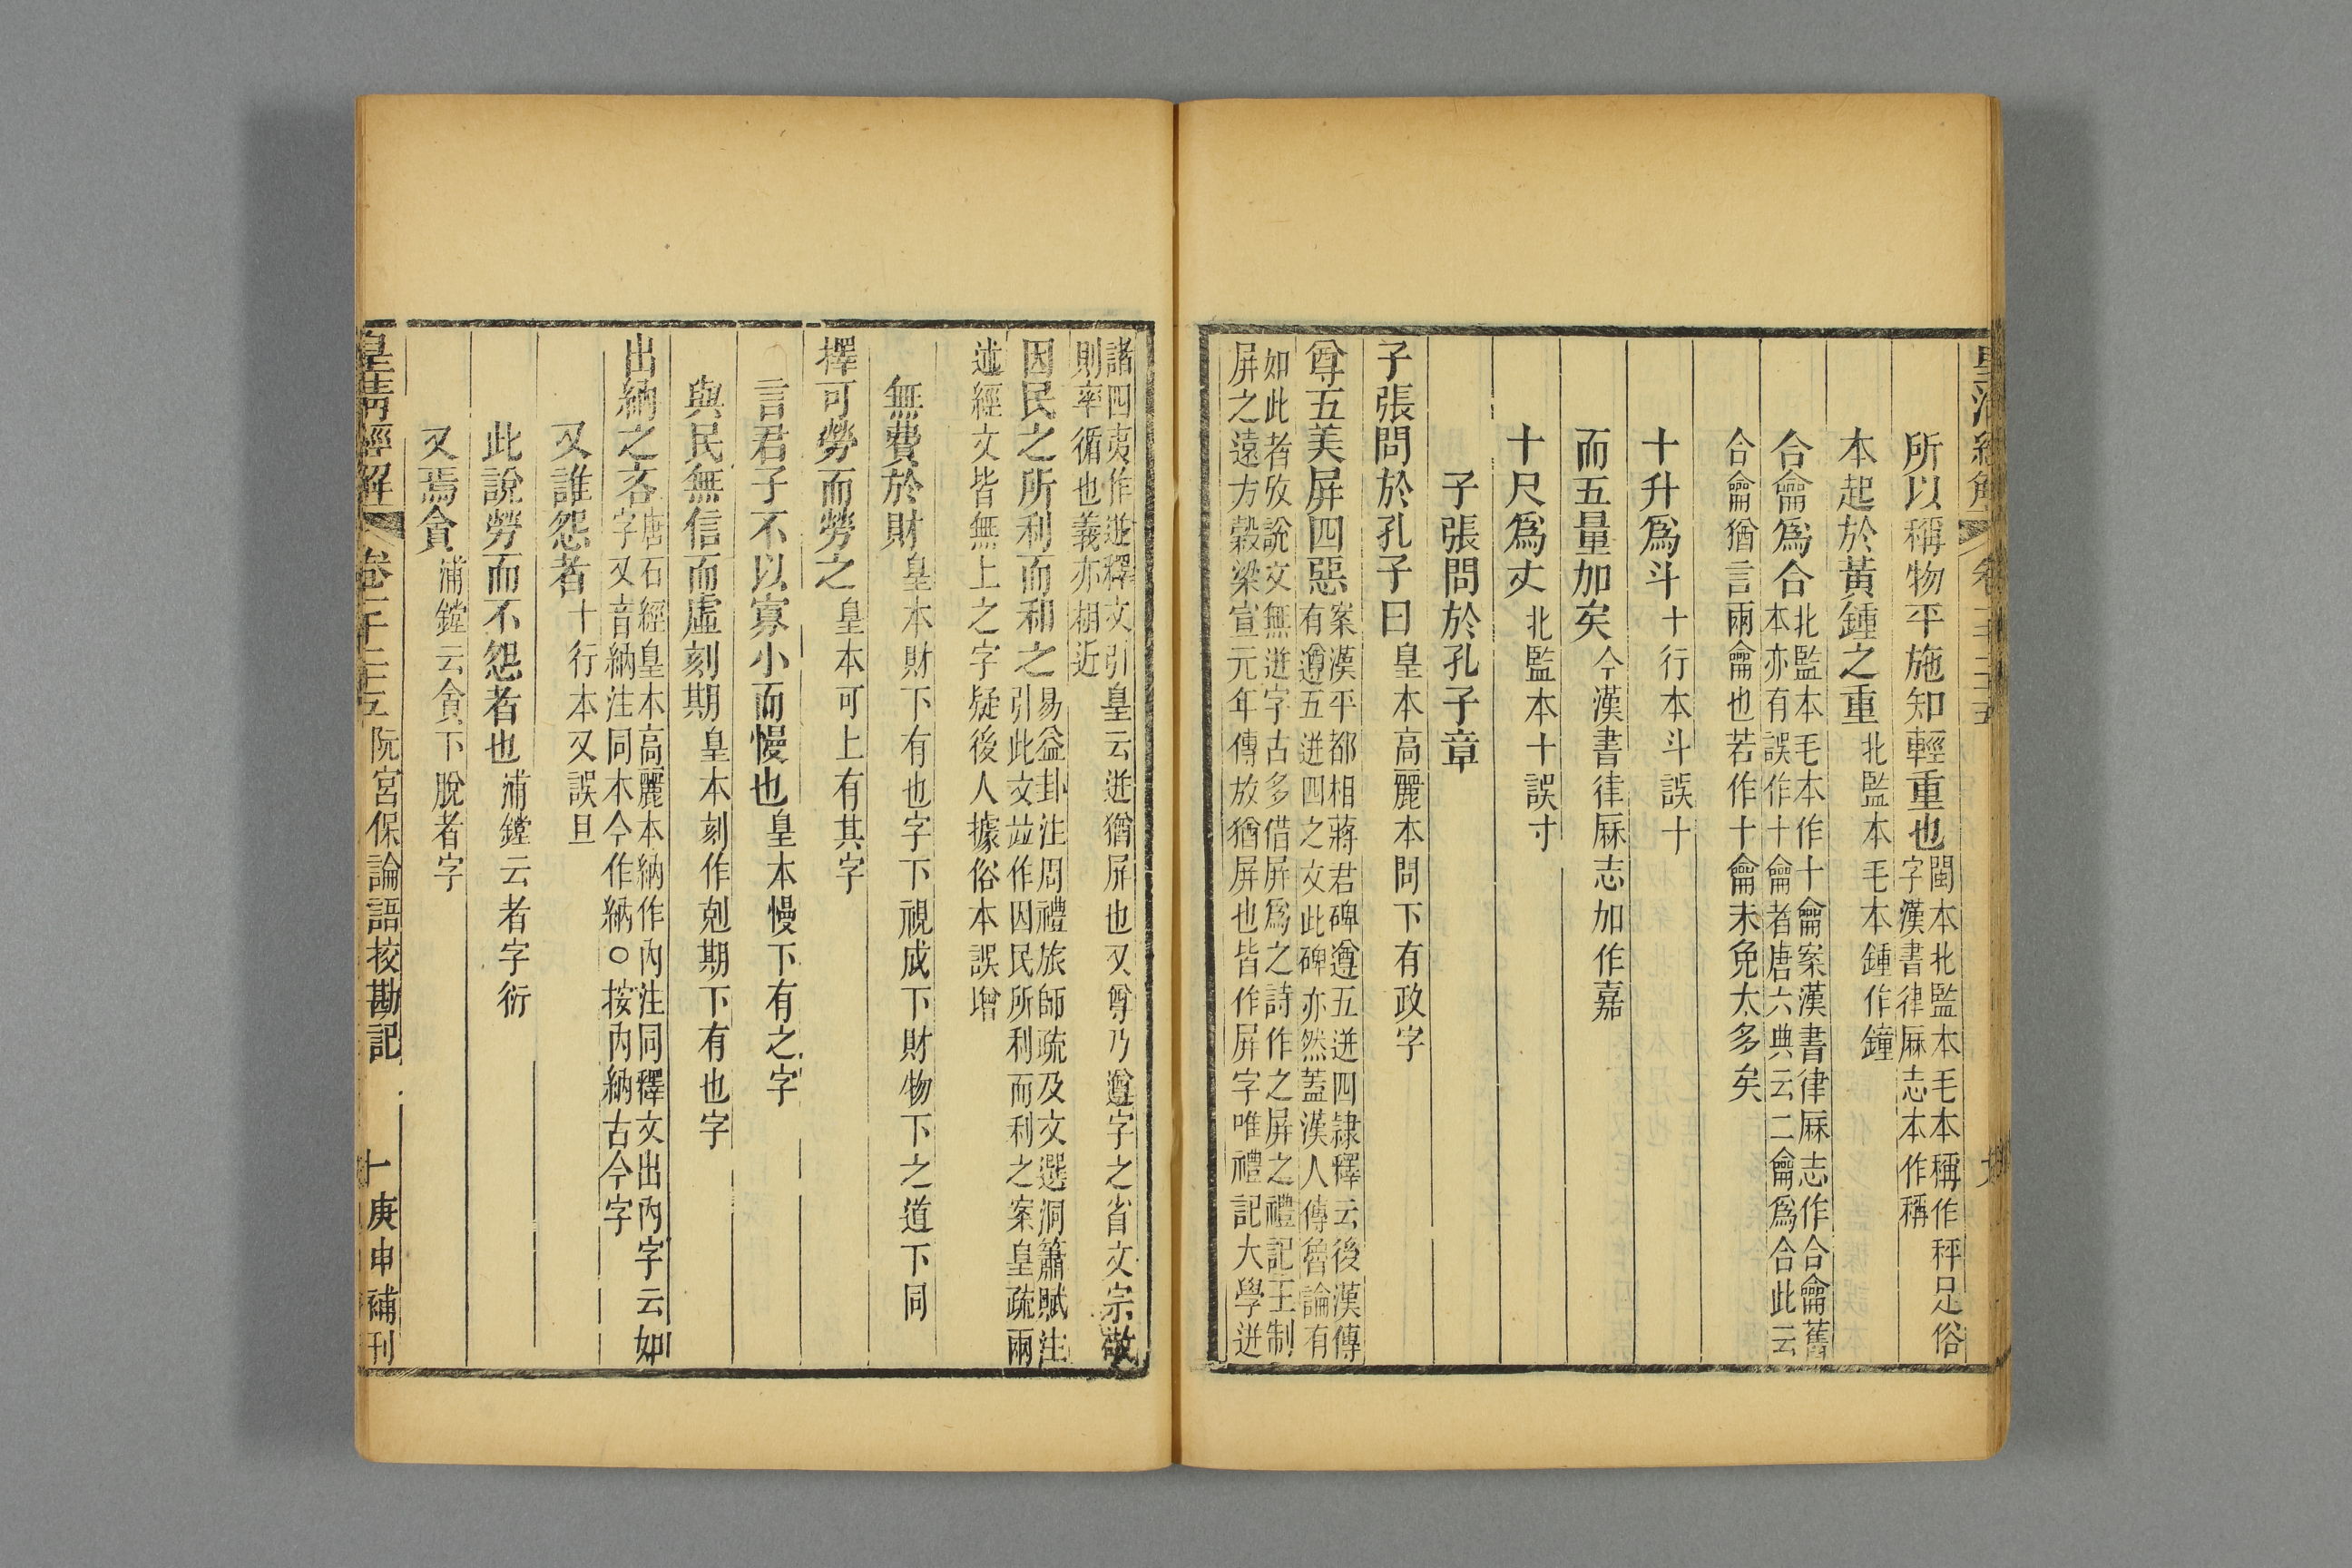 皇清經解
所以稱物平施知輕重也閩本北監本毛本稱作秤足俗
字漢書律厤志本作稱
本起於黃鍾之重北監本毛本鍾作鐘
合龠爲合北監本毛本作十龠案漢書律厤志作合龠舊
本亦有誤作十龠者唐六典云二龠爲合此云
合龠猶言兩龠也若作十龠未免太多矣
十升爲斗十行本斗誤十
而五量加矣今漢書律厤志加作嘉
十尺爲丈北監本十誤寸
子張問於孔子章
子張問於孔子曰皇本高麗本問下有政字
尊五美屛四惡案漢平都相蔣君碑遵五迸四隷釋云後漢傳
有遵五迸四之文此碑亦然葢漢人傳魯論有
如此者攷說文無迸字古多借屛爲之詩作之屛之禮記王制
屛之遠方榖梁宣元年傳放猶屛也皆作屛字唯禮記大學迸
諸四夷作迸釋文引皇云迸猶屛也又尊乃遵字之省文宗敬
則率循也義亦相近
因民之所利而利之易益卦注周禮旅師疏及文選洞簫賦注
引此文竝作因民所利而利之案皇疏兩
述經文皆無上之字疑後人據俗本誤增
無費於財皇本財下有也字下視成下財物下之道下同
擇可勞而勞之皇本可上有其字
言君子不以寡小而慢也皇本慢下有之字
與民無信而虛刻期皇本刻作剋期下有也字
出納之吝唐石經皇本高麗本納作內注同釋文出內字云如
字又音納注同本今作納○按內納古今字
又誰怨者十行本又誤旦
此說勞而不怨者也浦鏜云者字衍
又焉貪浦鏜云貪下脫者字
皇清經解 卷一千二十五 阮宮保論語挍勘記 十 庚申補刊